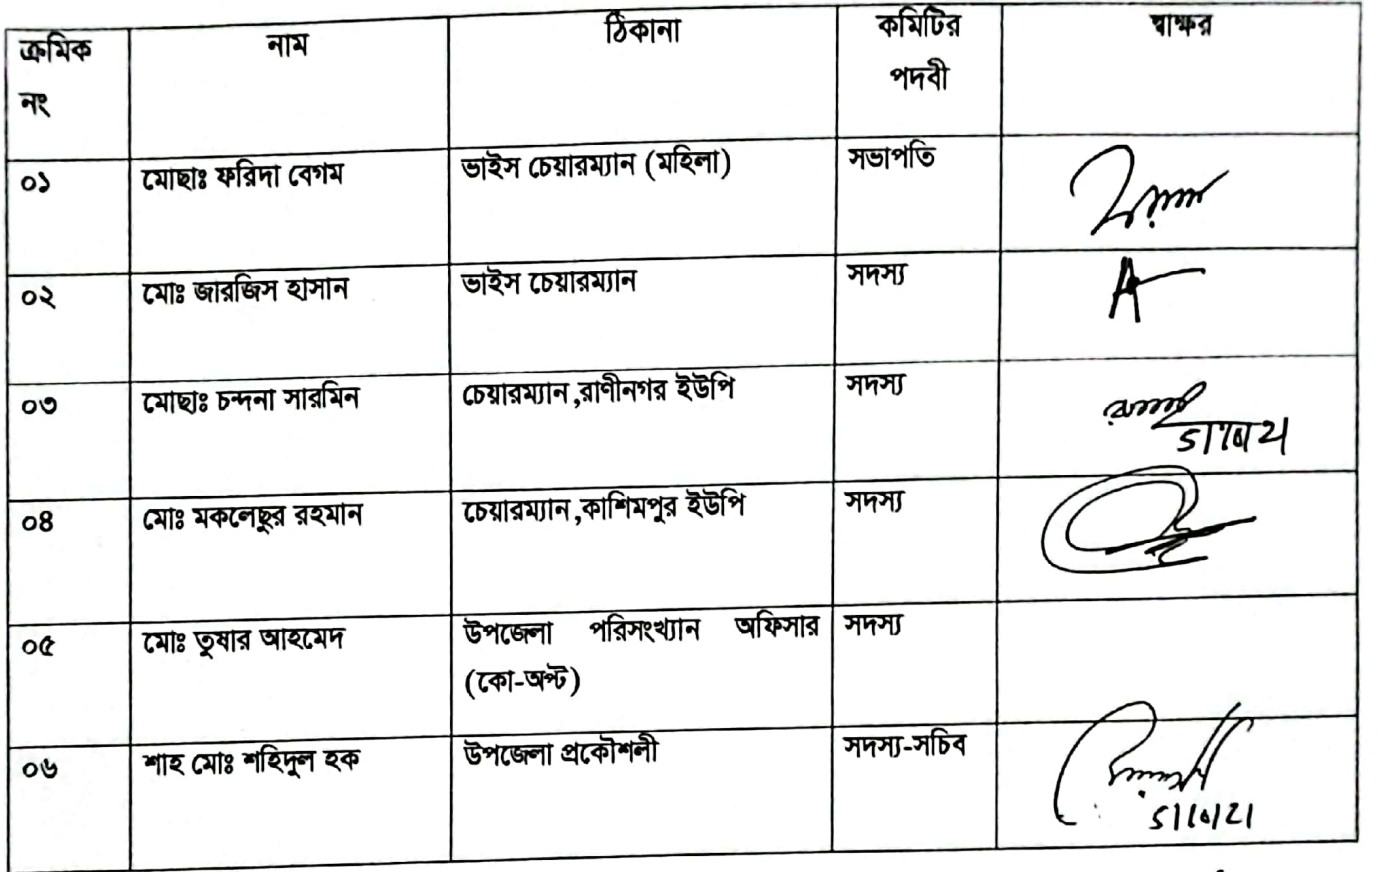 ক্রমিক নং নাম ঠিকানা কমিটির পদবী স্বাক্ষর
০১ মোছাঃ ফরিদা বেগম ভাইস চেয়ারম্যান (মহিলা) সভাপতি
০২ মোঃ জারজিস হাসান ভাইস চেয়ারম্যান সদস্য
০৩ মোছাঃ চন্দনা সারমিন চেয়ারম্যান,রাণীনগর ইউপি সদস্য
5/10/21
০৪ মোঃ মকলেছুর রহমান চেয়ারম্যান,কাশিমপুর ইউপি সদস্য
০৫ মোঃ তুষার আহমেদ উপজেলা পরিসংখ্যান অফিসার সদস্য
(কো-অপ্ট)
০৬ শাহ মোঃ শহিদুল হক উপজেলা প্রকৌশলী সদস্য-সচিব
5/10/21